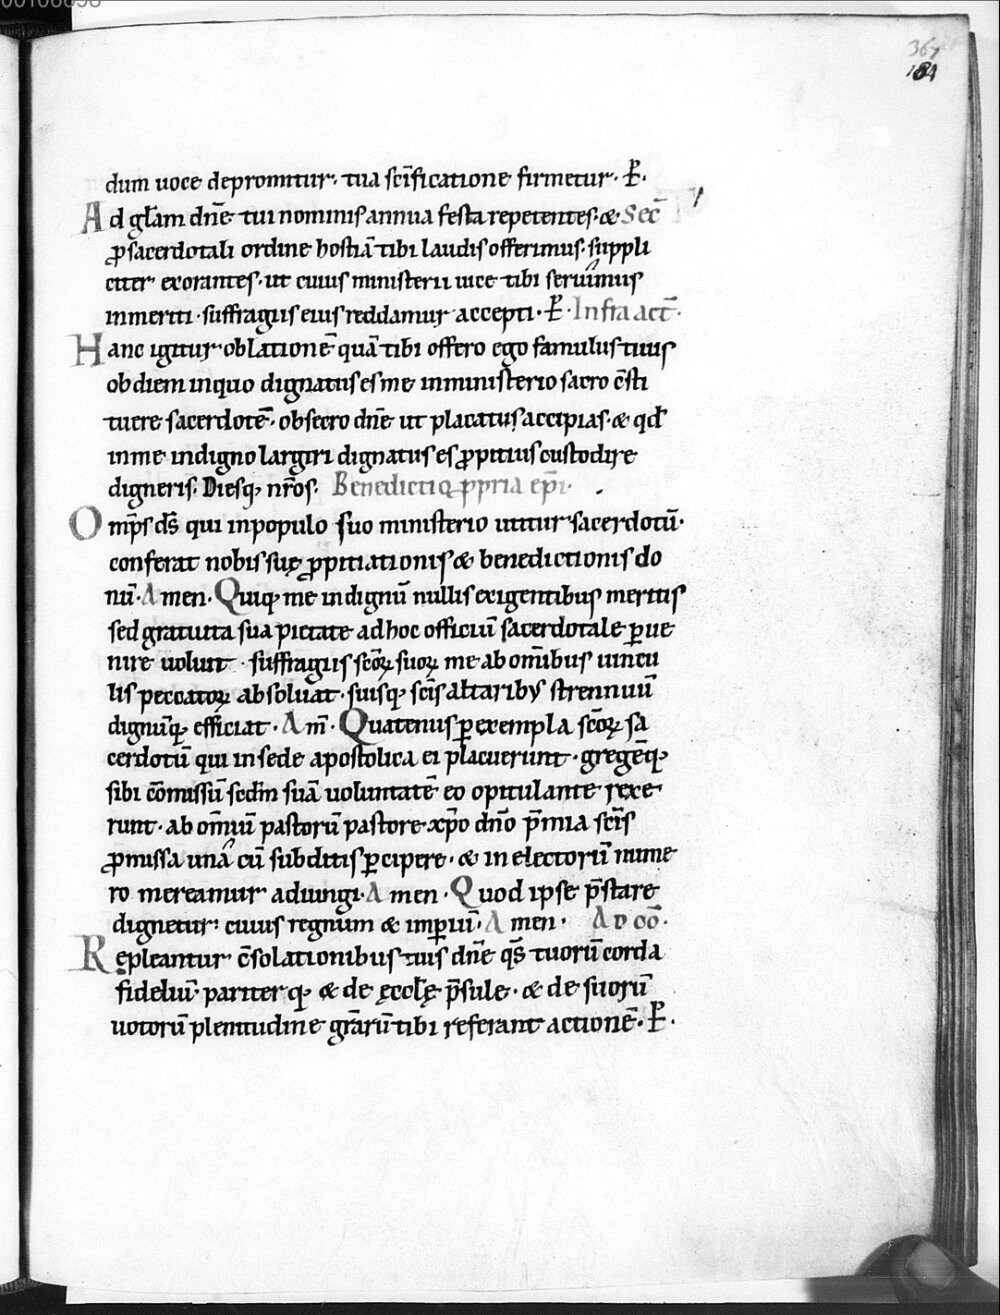 00106898
367
184
dum uoce depromitur· tua sc̄ificatione firmetur· P̄·
Ad gl̄am dn̄e tui nominis annua festa repetentes· & Sec̄
ꝓ sacerdotali ordine hostiā tibi laudis offerimus· suppli
citer exorantes· ut cuius ministerii uice tibi seruīmus
inmeriti· suffragiis eius reddamur accepti· P̄· Infra act̄·
Hanc igitur oblationē quā tibi offero ego famulus tuus
ob diem in quo dignatus es me in ministerio sacro c̄sti
tuere sacerdotē· obsecro dn̄e ut placatus accipias· & qd̄
in me indigno largiri dignatus es ꝓpitius custodire
digneris· Diesq; nr̄os· Benedictio ꝓpria ep̄i·
Om̄ps ds̄ qui in populo suo ministerio utitur sacerdotū·
conferat nobis suę ꝓpitiationis & benedictionis do
nū· Amen· Quiq; me indignū nullis exigentibus meritis
sed gratuita sua pietate ad hoc officiū sacerdotale ꝑue
nire uoluit· suffragiis sc̄oꝝ suoꝝ me ab om̄ibus uincu
lis peccatoꝝ absoluat· suisq; sc̄is altaribꝰ strennuū
dignūq; efficiat· Am̄· Quatenus ꝑ exempla sc̄oꝝ sa
cerdotū qui in sede apostolica ei placuerunt· gregēq;
sibi c̄omissū scd̄m suā uoluntatē eo opitulante rexe
runt· ab om̄iū pastorū pastore xp̄o dn̄o p̄mia sc̄is
ꝓmissa unā cū subditis ꝑcipere· & in electorū nume
ro mereamur adiungi· Amen· Quod ipse p̄stare
dignetur· cuius regnum & imꝑiū· Amen· Ad co̅·
Repleantur c̄solationibus tuis dn̄e qs̄ tuorū corda
fideliū· pariter q; & de ęcclę p̄sule· & de suorū
uotorū plenitudine gr̄arū tibi referant actionē· P̄·